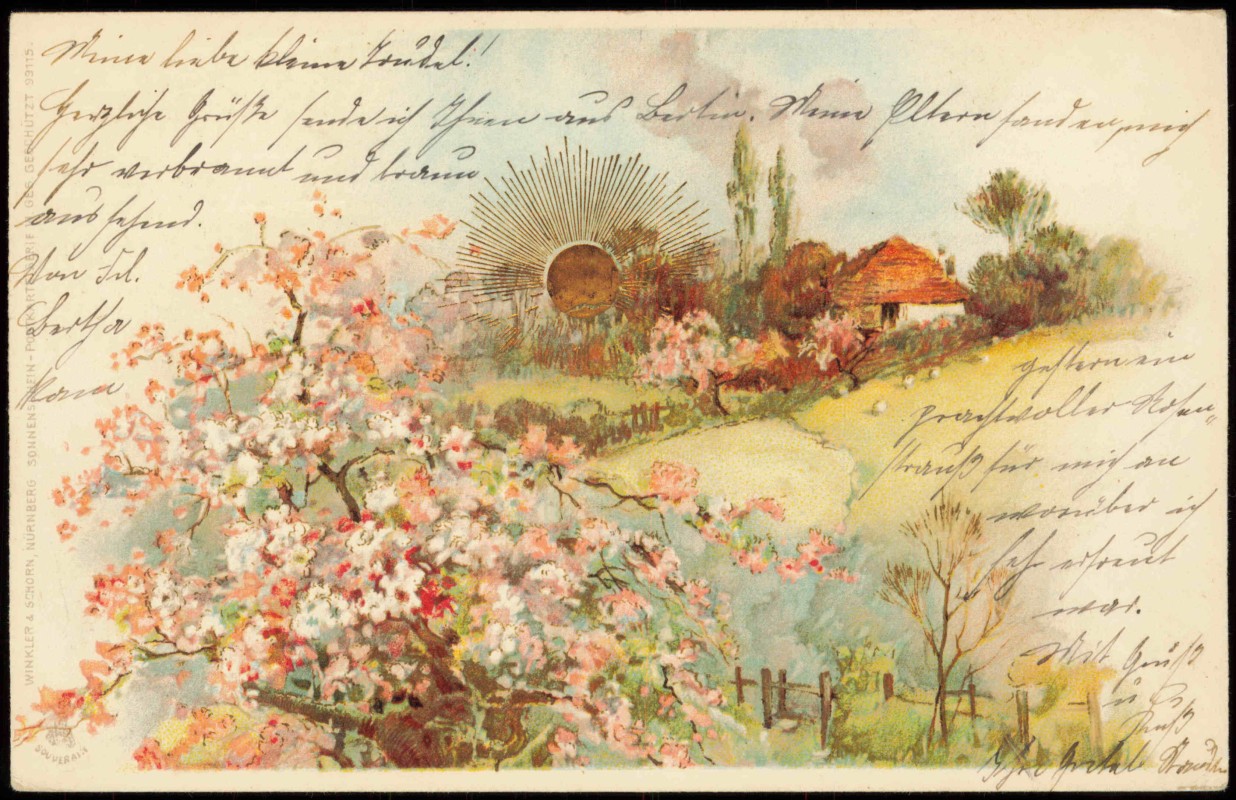 Meine liebe kleine Trudel!
Herzliche Grüße sende ich Ihnen aus Berlin. Meine Eltern fanden mich
sehr verbrannt und braun
aussehend.
Von Frl.
Bertha
kam
gestern ein
prachtvoller Rosen„
strauß für mich an
worüber ich
sehr erfreut
war.
Mit Gruß
u.
Kuß
Ihre Gretel
WINKLER & SCHORN, NÜRNBERG SONNENSCHEIN-POSTKARTE SERIE GES. GESCHÜTZT 99115.
SOUVERAIN